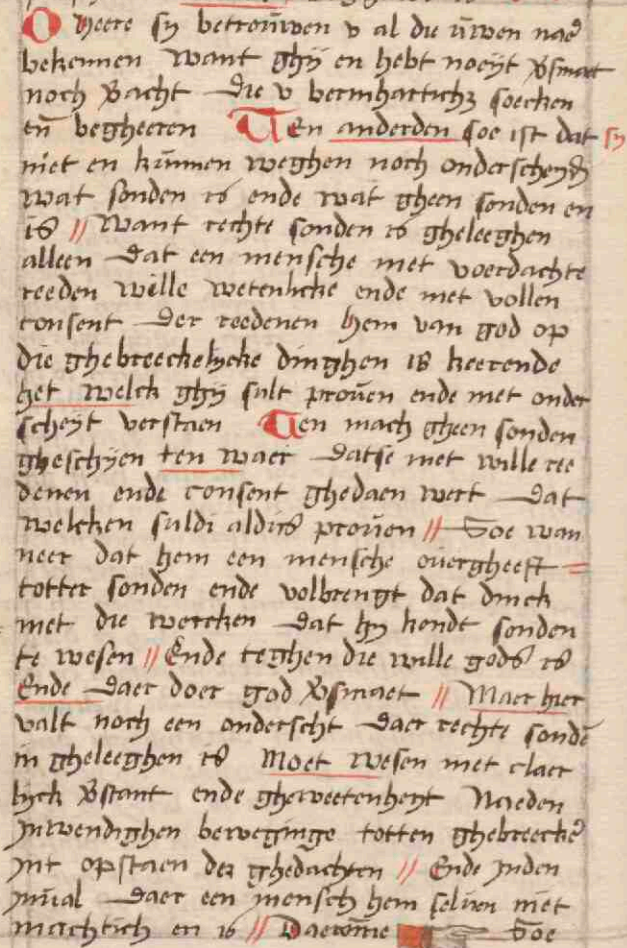 O Heere sy betrouwen v al die uwen nae
bekennen want ghy en hebt noeyt vsmaet
noch vacht die v bermhartichz soecken
en begheeren Ten anderden soe ist dat sy
niet en kunnen weghen noch onderscheyd
wat sonden is ende wat gheen sonden en
is // Want rechte sonden is gheleeghen
alleen dat een mensche met voerdachte
reeden wille wetenlicke ende met vollen
consent der reedenen hem van god op
die ghebreeckelycke dinghen is keerende
het welck ghy sult prouen ende met onder
scheyt verstaen Ten mach gheen sonden
gheschyen ten waer datse met wille ree
denen ende consent ghedaen wert dat
welcken suldi aldus prouen // Soe wan
neer dat hem een mensche ouergheeft =
totter sonden ende volbrengt dat dinck
met die wercken dat hy kendt sonden
te wesen // Ende teghen die wille gods is
Ende daer doer god vsmaet // Maer hier
valt noch een onderscht daer rechte sonde
in gheleeghen is Moet wesen met claer
lyck vstant ende gheweetenheyt Naeden
Inwendighen beweginge totten ghebreecke
Int opstaen der ghedachten // Ende Inden
Inual daer een mensch hem seluen niet
machtich en is // Daeromme Soe